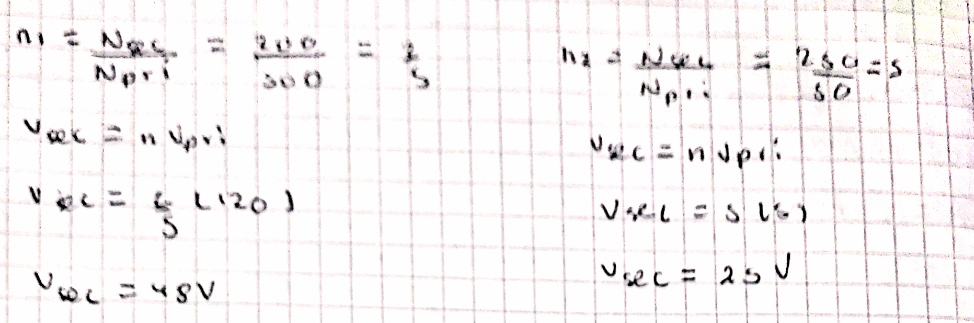 n1 = Nsec/Npri = 200/500 = 2/5
Vsec = n Vpri
Vsec = 2/5 (120)
Vsec = 48V
n2 = Nsec/Npri = 250/50 = 5
Vsec = n Vpri
Vsec = 5 (5)
Vsec = 25 V